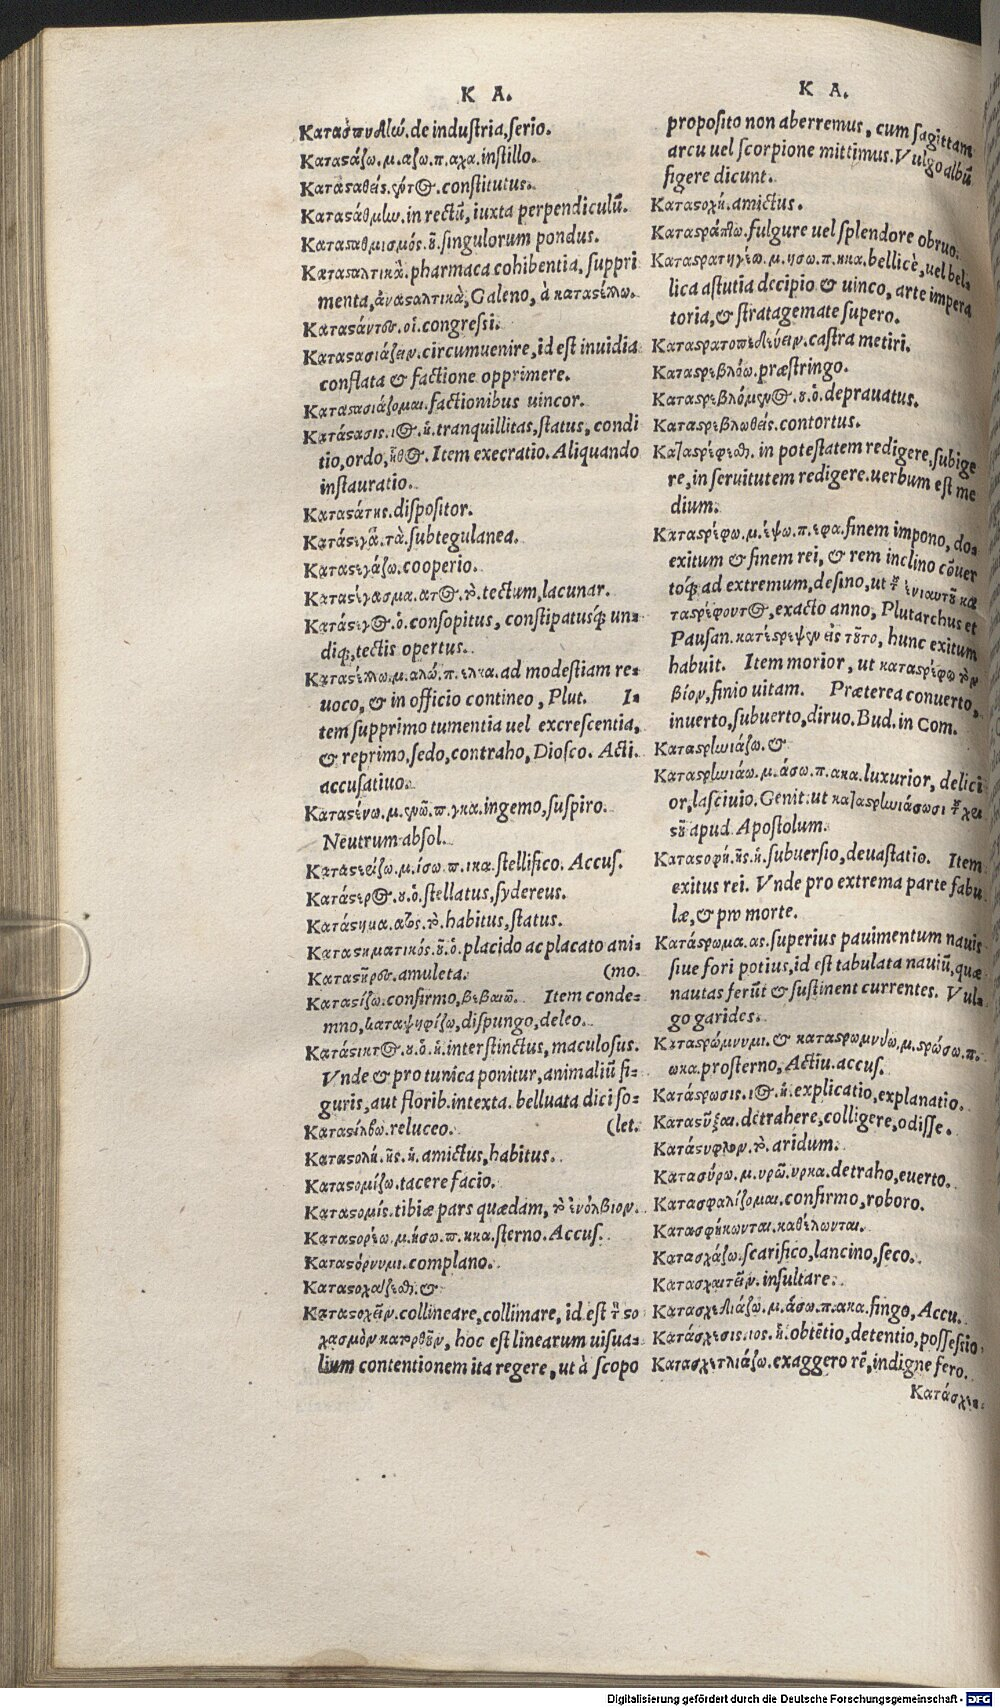 K A.
Κατασπουδίω. de industria, serio.
Καταστάζω. μ. αξω. π. αχα. instillo.
Κατασταθείς. έντος. constitutus.
Καταστάθμίω. in rectũ, iuxta perpendiculũ.
Κατασταθμισμός. οῦ. singulorum pondus.
Κατασταλτικὰ. pharmaca cohibentia, suppri
menta, ἀνασταλτικὰ, Galeno, à καταστέλλω.
Καταστάντες. οἱ. congressi.
Καταστασιάζειν. circumuenire, id est inuidia
conflata & factione opprimere.
Καταστασιάζομαι. factionibus uincor.
Κατάστασις. ιος. ἡ. tranquillitas, status, condi
tio, ordo, ἦθος. Item execratio. Aliquando
instauratio.
Καταστάτης. dispositor.
Κατάστεγα. τὰ. subtegulanea.
Καταστεγάζω. cooperio.
Καταστέγασμα. ατος. τὸ. tectum, lacunar.
Κατάστεγος. ὁ. consopitus, constipatusq́; un=
diq́;, tectis opertus.
Καταστέλλω. μ. αλῶ. π. ελκα. ad modestiam re=
uoco, & in officio contineo, Plut. I=
tem supprimo tumentia uel excrescentia,
& reprimo, sedo, contraho, Diosco. Acti.
accusatiuo.
Καταστένω. μ. ενῶ. π. γκα. ingemo, suspiro.
Neutrum absol.
Καταστερίζω. μ. ίσω. π. ικα. stellifico. Accus.
Κατάστερος. ου. ὁ. stellatus, sydereus.
Κατάστημα. ατος. τὸ. habitus, status.
Καταστηματικός. οῦ. ὁ. placido ac placato ani=
Καταστῆρες. amuleta. (mo.
Καταστίζω. confirmo, βεβαιῶ. Item conde=
mno, καταψηφίζω, dispungo, deleo.
Κατάστικτος. ου. ὁ. ἡ. interstinctus, maculosus.
Vnde & pro tunica ponitur, animaliũ fi=
guris, aut florib. intexta. belluata dici so=
Καταστίλβω. reluceo. (let.
Καταστολή. ῆς. ἡ. amictus, habitus.
Καταστομίζω. tacere facio.
Καταστομίς. tibiæ pars quædam, τὸ ἐνόλβιον.
Καταστορέω. μ. ήσω. π. ηκα. sterno. Accus.
Καταστόρνυμι. complano.
Καταστοχάζεσθαι. &
Καταστοχεῖν. collineare, collimare, id est τ στο
χασμὸν κατορθοῦν, hoc est linearum uisua=
lium contentionem ita regere, ut à scopo
K A.
proposito non aberremus, cum sagittam
arcu uel scorpione mittimus. Vulgo albũ
figere dicunt.
Καταστοχή. amictus.
Καταστράπτω. fulgure uel splendore obruo.
Καταστρατηγέω. μ. ησω. π. ηκα. bellicè, uel bel=
lica astutia decipio & uinco, arte impera
toria, & stratagemate supero.
Καταστρατοπεδεύειν. castra metiri.
Καταστρεβλόω. præstringo.
Καταστρεβλόμενος. ου. ὁ. deprauatus.
Καταστρεβλωθείς. contortus.
Καταστρέφεσθαι. in potestatem redigere, subige
re, in seruitutem redigere. uerbum est me
dium.
Καταστρέφω. μ. έψω. π. εφα. finem impono, do=
exitum & finem rei, & rem inclino cõuer
toq́; ad extremum, desino, ut τ ἐνιαυτοῦ κα
ταστρέφοντος, exacto anno, Plutarchus et
Pausan. κατέστρεψεν εἰς τοῦτο, hunc exitum
habuit. Item morior, ut καταστρέφω τὸν
βίον, finio uitam. Præterea conuerto,
inuerto, subuerto, diruo. Bud. in Com.
Καταστρηνιάζω. &
Καταστρηνιάω. μ. άσω. π. ακα. luxurior, delici
or, lasciuio. Genit. ut καταστρηνιάσωσι τ χρι
στοῦ apud Apostolum.
Καταστροφή. ῆς. ἡ. subuersio, deuastatio. Item
exitus rei. Vnde pro extrema parte fabu
læ, & pro morte.
Κατάστρωμα. ας. superius pauimentum nauis
siue fori potius, id est tabulata nauiũ, quæ
nautas ferũt & sustinent currentes. Vul=
go garides.
Καταστρώμνυμι. & καταστρωμνύω. μ. στρώσω. π.
ωκα. prosterno, Actiu. accus.
Κατάστρωσις. ιος. ἡ. explicatio, explanatio.
Καταστῦξαι. detrahere, colligere, odisse.
Κατάστυφλον. τὸ. aridum.
Κατασύρω. μ. υρῶ. υρκα. detraho, euerto.
Κατασφαλίζομαι. confirmo, roboro.
Κατασφήκωνται. καθέλωνται.
Κατασχάζω. scarifico, lancino, seco.
Κατασχαιτεῖν. insultare.
Κατασχεδιάζω. μ. άσω. π. ακα. fingo, Accu.
Κατάσχεσις. ιος. ἡ. obtẽtio, detentio, possessio.
Κατασχετλιάζω. exaggero rẽ, indigne fero.
Κατάσχε=
Digitalisierung gefördert durch die Deutsche Forschungsgemeinschaft - DFG